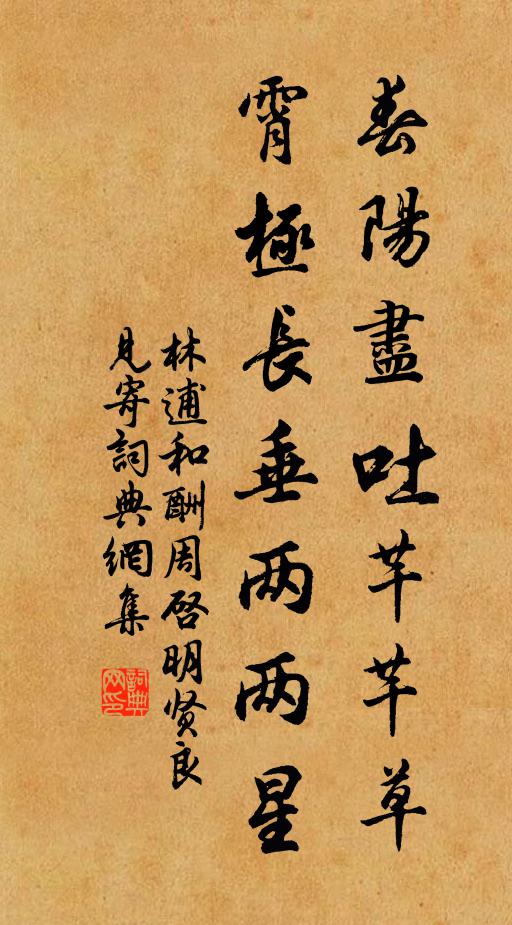 春陽盡吐芊芊草
霄極長垂两两星
林逋和酬周启明贤良
見寄詞典網集
詞典
网印